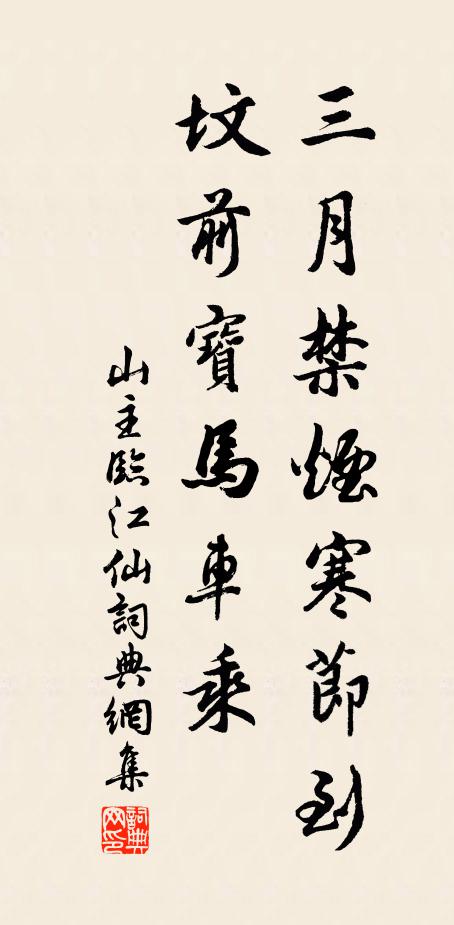 三月禁煙寒節到
墳前寶馬車乘
山主臨江仙詞典網集
詞典網印